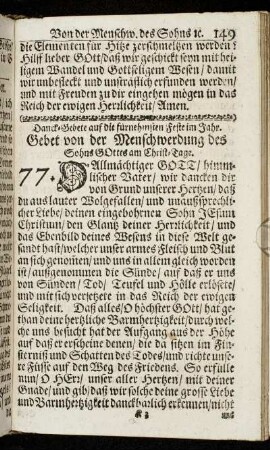 Von der Menschw. des Sohns ꝛc. 149
die Elementen für Hitze zerschmeltzen werden?
Hilff lieber GOtt/daß wir geschickt seyn mit hei-
ligem Wandel und Gottseligem Wesen/ damit
wir unbefleckt und unsträflich erfunden werden/
und mit Freuden zu dir eingehen mögen in das
Reich der ewigen Herrlichkeit/ Amen.
Danck-Gebete auf die fürnehmsten Feste im Jahr.
Gebet von der Menschwerdung des
Sohns GOttes am Christ-Tage.
77. O Allmächtiger GOTT/ himm-
lischer Vater/ wir dancken dir
von Grund unserer Hertzen/ daß
du aus lauter Wolgefallen/ und unaußsprechli-
cher Liebe/ deinen eingebohrnen Sohn JEsum
Christum/ den Glantz deiner Herrlichkeit/ und
das Ebenbild deines Wesens in diese Welt ge-
sandt hast/welcher unser armes Fleisch und Blut
an sich genom̃en/ und uns in allem gleich worden
ist/ außgenommen die Sünde/ auf daß er uns
von Sünden/ Tod/ Teufel und Hölle erlösete/
und mit sich versetzete in das Reich der ewigen
Seligkeit. Daß alles/O höchster GOtt/ hat ge-
than deine hertzliche Barmhertzigkeit/durch wel-
che uns besucht hat der Aufgang aus der Höhe
auf daß er erscheine denen/ die da sitzen im Fin-
sterniß und Schatten des Todes/und richte unse-
re Füsse auf den Weg des Friedens. So erfülle
nun/O HErr/ unser aller Hertzen/ mit deiner
Gnade/ und gib/ daß wir solche deine grosse Liebe
und Barmhertzigkeit danckbarlich erkennen/nicht